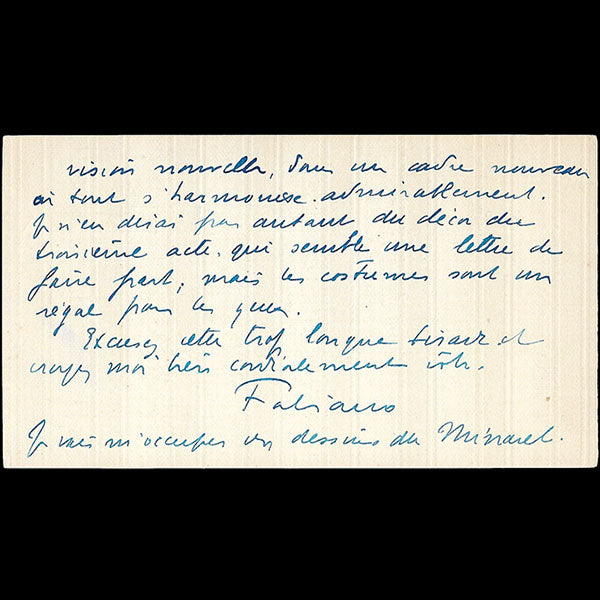 vision nouvelle, dans un cadre nouveau
où tout s'harmonise admirablement.
Je n'en dirai pas autant du décor du
troisième acte, qui semble une lettre de
faire part ; mais les costumes sont un
régal pour les yeux.
Excusez cette trop longue tirade et
croyez moi très cordialement vôtre.
Fabiano
Je vais m'occuper des dessins du Minaret.